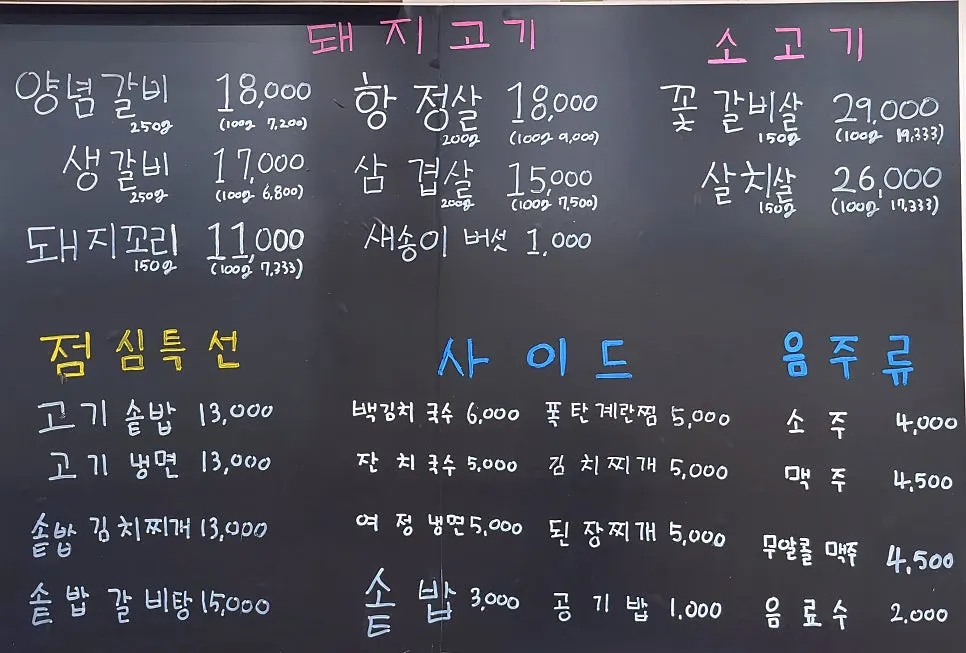 돼지고기
양념갈비 250g 18,000 (100g 7,200)
생갈비 250g 17,000 (100g 6,800)
돼지꼬리 150g 11,000 (100g 7,333)
항정살 200g 18,000 (100g 9,000)
삼겹살 200g 15,000 (100g 7,500)
새송이 버섯 1,000
소고기
꽃갈비살 150g 29,000 (100g 19,333)
살치살 150g 26,000 (100g 17,333)
점심특선
고기 솥밥 13,000
고기 냉면 13,000
솥밥 김치찌개 13,000
솥밥 갈비탕 15,000
사이드
백김치 국수 6,000
잔치국수 5,000
여정 냉면 5,000
솥밥 3,000
폭탄계란찜 5,000
김치찌개 5,000
된장찌개 5,000
공기밥 1,000
음주류
소주 4,000
맥주 4,500
무알콜 맥주 4,500
음료수 2,000